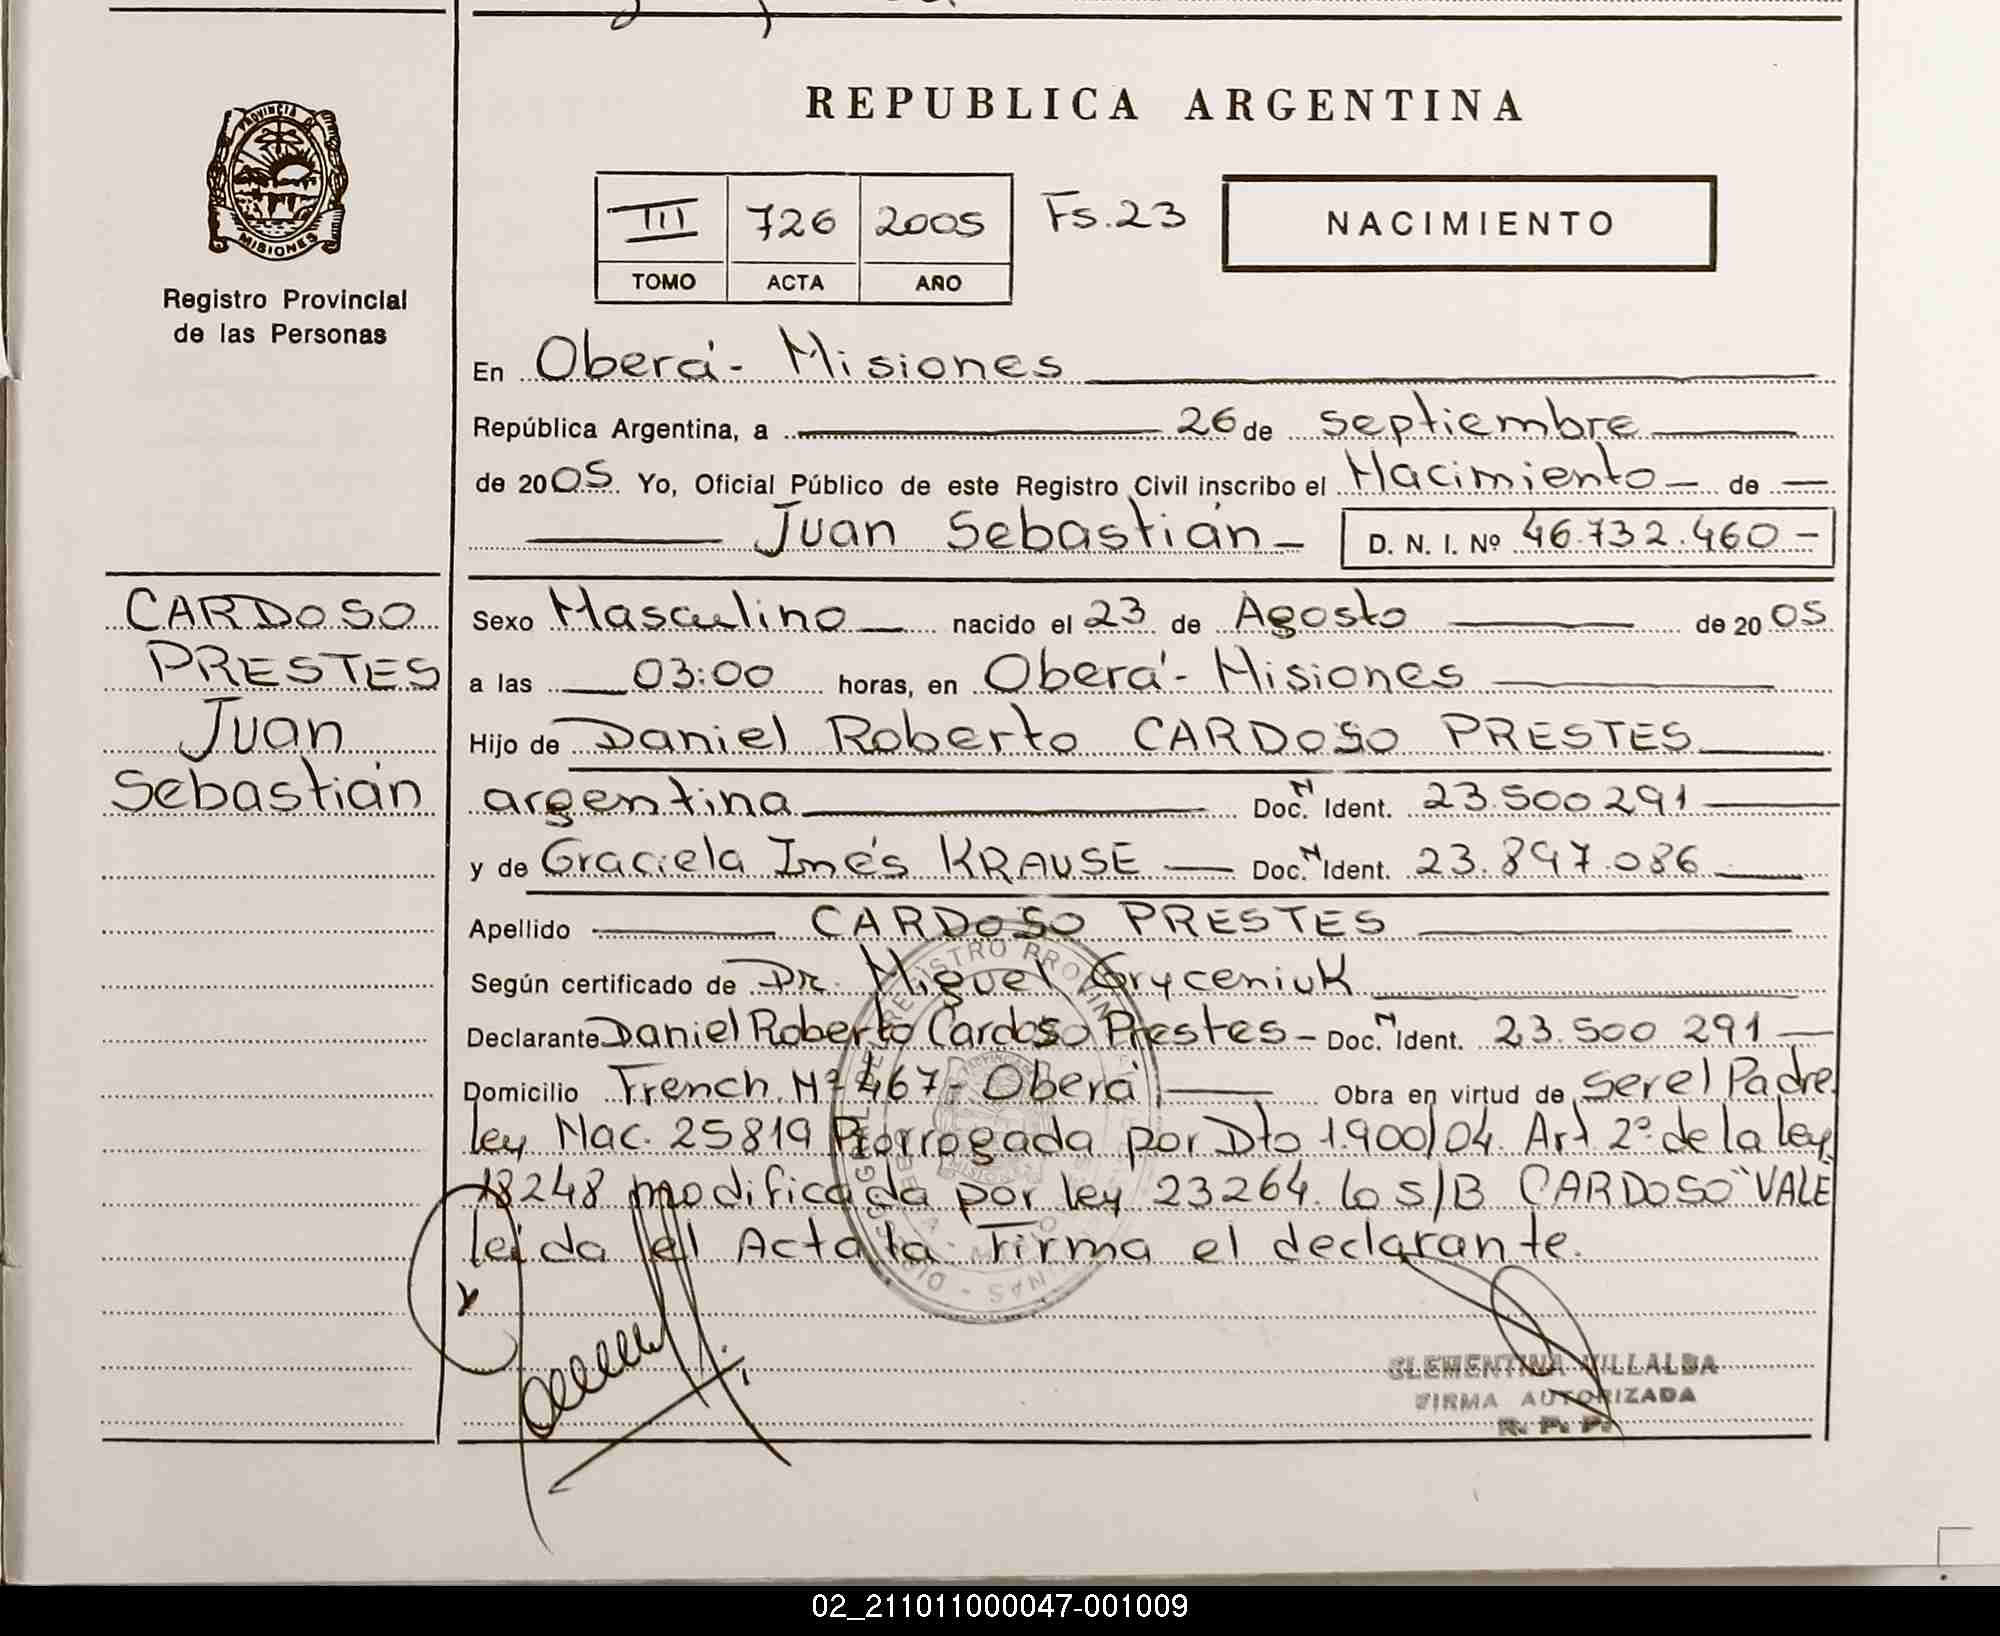 REPUBLICA ARGENTINA
PROVINCIA DE
MISIONES
Registro Provincial
de las Personas
III 726 2005 Fs.23
TOMO ACTA AÑO
NACIMIENTO
En Oberá - Misiones
República Argentina, a 26 de septiembre
de 2005. Yo, Oficial Público de este Registro Civil inscribo el Nacimiento de
Juan Sebastián - D. N. I. Nº 46.732.460 -
CARDOSO
PRESTES
Juan
Sebastián
Sexo Masculino nacido el 23 de Agosto de 2005
a las 03:00 horas, en Oberá - Misiones
Hijo de Daniel Roberto CARDOSO PRESTES
argentina Doc. N Ident. 23.500.291
y de Graciela Inés KRAUSE Doc. N Ident. 23.897.086
Apellido CARDOSO PRESTES
Según certificado de Dr. Miguel Gryceniuk
Declarante Daniel Roberto Cardoso Prestes - Doc. N Ident. 23.500 291
Domicilio French Nº 467 - Oberá Obra en virtud de ser el Padre
ley Nac. 25819 Prorrogada por Dto 1.900/04. Art 2º de la ley
18248 modificada por ley 23264. lo s/B CARDOSO "VALE
leida el Acta la Firma el declarante.
CLEMENTINA VILLALBA
FIRMA AUTORIZADA
R. P. P.
02_211011000047-001009